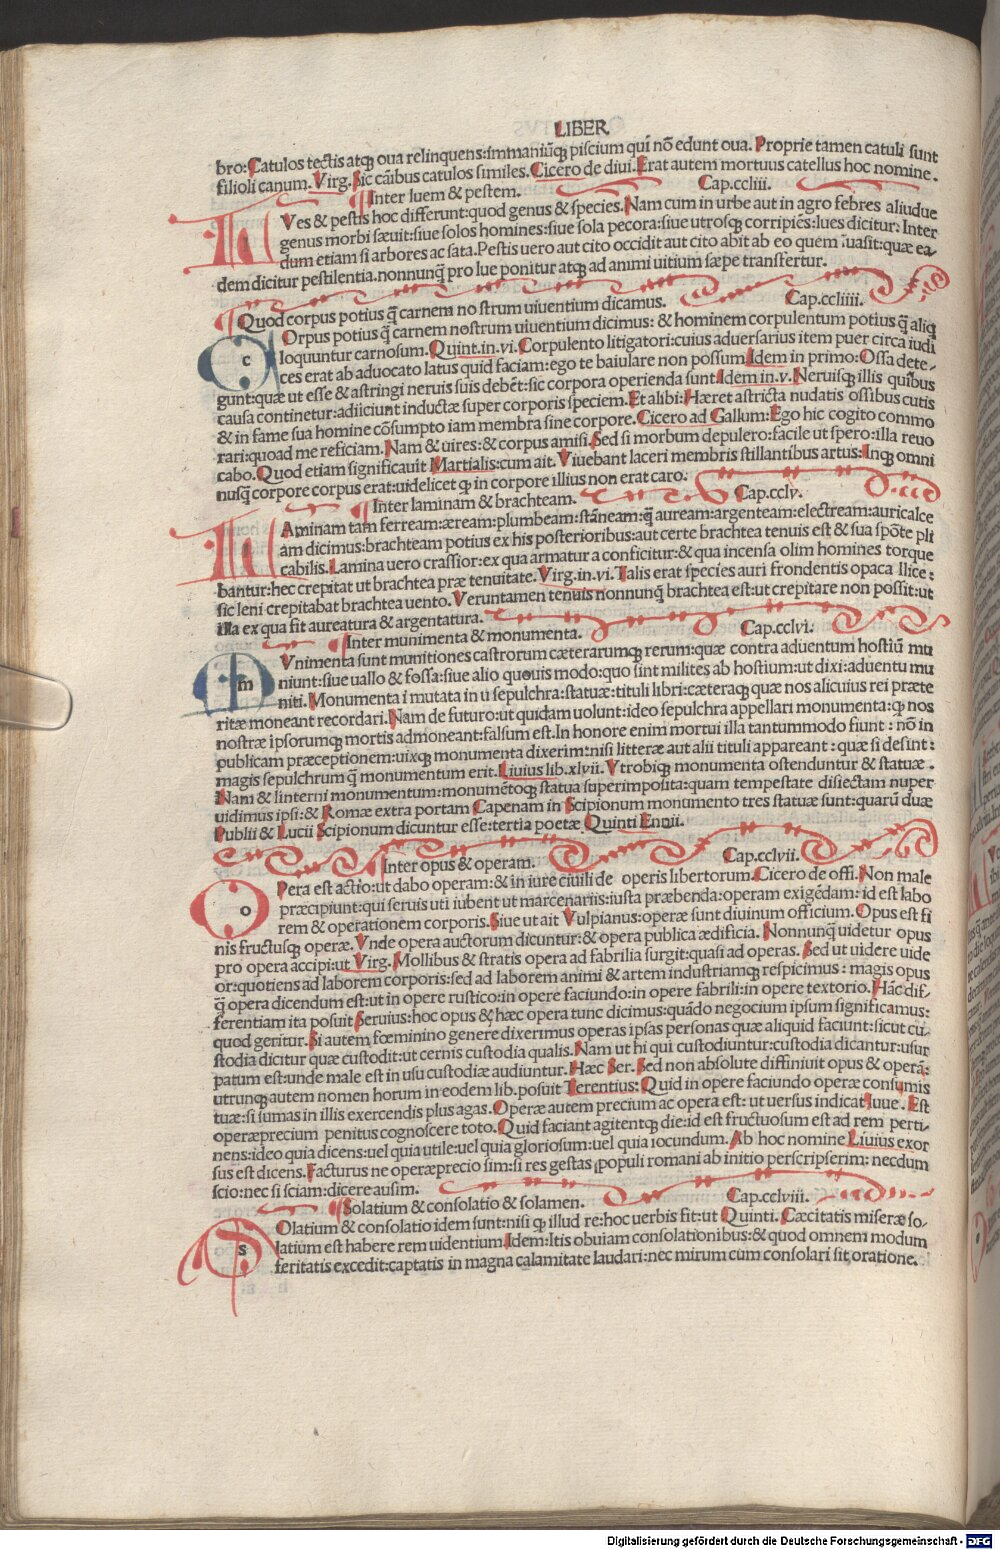 LIBER
bro: Catulos tectis atqꝫ oua relinquens: immaniūqꝫ piscium qui nō edunt oua. Proprie tamen catuli sunt
filioli canum. Virg. Sic cāibus catulos similes. Cicero de diui. Erat autem mortuus catellus hoc nomine.
Inter luem & pestem. Cap.ccliii.
Ves & pestis hoc differunt: quod genus & species. Nam cum in urbe aut in agro febres aliudue
genus morbi sæuit: siue solos homines: siue sola pecora: siue utrosqꝫ corripiēs: lues dicitur: Inter
dum etiam si arbores ac sata. Pestis uero aut cito occidit aut cito abit ab eo quem īuasit: quæ ea/
dem dicitur pestilentia. nonnunq̄ pro lue ponitur atqꝫ ad animi uitium sæpe transfertur.
Quod corpus potius q̄ carnem nostrum uiuentium dicamus. Cap.ccliiii.
c Orpus potius q̄ carnem nostrum uiuentium dicimus: & hominem corpulentum potius q̄ aliq
loquuntur carnosum. Quint. in. vi. Corpulento litigatori: cuius aduersarius item puer circa iudi
ces erat ab aduocato latus quid faciam: ego te baiulare non possum. Idem in primo: Ossa dete/
gunt: quæ ut esse & astringi neruis suis debēt: sic corpora operienda sunt. Idem in. v. Neruisqꝫ illis quibus
causa continetur: adiiciunt inductæ super corporis speciem. Et alibi: Hæret astricta nudatis ossibus cutis
& in fame sua homine cōsumpto iam membra sine corpore. Cicero ad Gallum: Ego hic cogito commo
rari: quoad me reficiam. Nam & uires: & corpus amisi. Sed si morbum depulero: facile ut spero: illa reuo
cabo. Quod etiam significauit Martialis: cum ait. Viuebant laceri membris stillantibus artus: Inqꝫ omni
nusq̄ corpore corpus erat: uidelicet ꝙ in corpore illius non erat caro.
Inter laminam & brachteam. Cap.cclv.
Aminam tam ferream: æream: plumbeam: stāneam: q̄ auream: argenteam: electream: auricalce
am dicimus: brachteam potius ex his posterioribus: aut certe brachtea tenuis est & sua spōte pli
cabilis. Lamina uero crassior: ex qua armatura conficitur: & qua incensa olim homines torque
bantur: hec crepitat ut brachtea præ tenuitate. Virg. in. vi. Talis erat species auri frondentis opaca Ilice:
sic leni crepitabat brachtea uento. Veruntamen tenuis nonnunq̄ brachtea est: ut crepitare non possit: ut
illa ex qua fit aureatura & argentatura.
Inter munimenta & monumenta. Cap.cclvi.
m Vnimenta sunt munitiones castrorum cæterarumqꝫ rerum: quæ contra aduentum hostiū mu
niunt: siue uallo & fossa: siue alio quouis modo: quo sint milites ab hostium: ut dixi: aduentu mu
niti. Monumenta i mutata in u sepulchra: statuæ: tituli libri: cæteraqꝫ quæ nos alicuius rei præte
ritæ moneant recordari. Nam de futuro: ut quidam uolunt: ideo sepulchra appellari monumenta: ꝙ nos
nostræ ipsorumqꝫ mortis admoneant: falsum est. In honore enim mortui illa tantummodo fiunt: nō in
publicam præceptionem: uixqꝫ monumenta dixerim: nisi litteræ aut alii tituli appareant: quæ si desint:
magis sepulchrum q̄ monumentum erit. Liuius lib. xlvii. Vtrobiqꝫ monumenta ostenduntur & statuæ.
Nam & linterni monumentum: monumētoqꝫ statua superimposita: quam tempestate disiectam nuper
uidimus ipsi: & Romæ extra portam Capenam in Scipionum monumento tres statuæ sunt: quarū duæ
Publii & Lucii Scipionum dicuntur esse: tertia poetæ Quinti Ennii.
Inter opus & operam. Cap.cclvii.
o Pera est actio: ut dabo operam: & in iure ciuili de operis libertorum. Cicero de offi. Non male
præcipiunt: qui seruis uti iubent ut marcenariis: iusta præbenda: operam exigēdam: id est labo
rem & operationem corporis. Siue ut ait Vulpianus: operæ sunt diuinum officium. Opus est fi
nis fructusqꝫ operæ. Vnde opera auctorum dicuntur: & opera publica ædificia. Nonnunq̄ uidetur opus
pro opera accipi: ut Virg. Mollibus & stratis opera ad fabrilia surgit: quasi ad operas. Sed ut uidere uide
or: quotiens ad laborem corporis: sed ad laborem animi & artem industriamqꝫ respicimus: magis opus
q̄ opera dicendum est: ut in opere rustico: in opere faciundo: in opere fabrili: in opere textorio. Hāc dif/
ferentiam ita posuit Seruius: hoc opus & hæc opera tunc dicimus: quādo negocium ipsum significamus:
quod geritur. Si autem fœminino genere dixerimus operas ipsas personas quæ aliquid faciunt: sicut cu/
stodia dicitur quæ custodit: ut cernis custodia qualis. Nam ut hi qui custodiuntur: custodia dicantur: usur
patum est: unde male est in usu custodiæ audiuntur. Hæc Ser. Sed non absolute diffiniuit opus & operā:
utrunqꝫ autem nomen horum in eodem lib. posuit Terentius: Quid in opere faciundo operæ consumis
tuæ: si sumas in illis exercendis plus agas. Operæ autem precium ac opera est: ut uersus indicat Iuue. Est
operæprecium penitus cognoscere toto. Quid faciant agitentqꝫ die: id est fructuosum est ad rem perti/
nens: ideo quia dicens: uel quia utile: uel quia gloriosum: uel quia iocundum. Ab hoc nomine Liuius exor
sus est dicens. Facturus ne operæprecio sim: si res gestas populi romani ab initio perscripserim: necdum
scio: nec si sciam: dicere ausim.
Solatium & consolatio & solamen. Cap.cclviii.
s Olatium & consolatio idem sunt: nisi ꝙ illud re: hoc uerbis fit: ut Quinti. Cæcitatis miseræ so/
latium est habere rem uidentium. Idem: Itis obuiam consolationibus: & quod omnem modum
feritatis excedit: captatis in magna calamitate laudari: nec mirum cum consolari sit oratione.
Digitalisierung gefördert durch die Deutsche Forschungsgemeinschaft - DFG